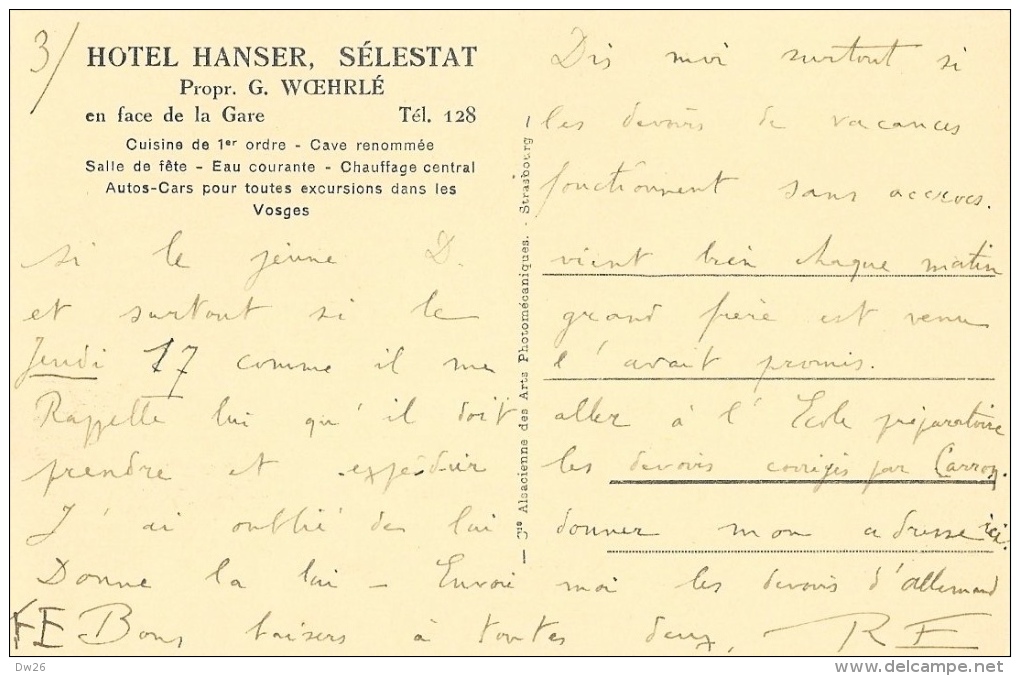 3/
HOTEL HANSER, SÉLESTAT
Propr. G. WŒHRLÉ
en face de la Gare Tél. 128
Cuisine de 1er ordre - Cave renommée
Salle de fête - Eau courante - Chauffage central
Autos-Cars pour toutes excursions dans les
Vosges
— 3is Alsacienne des Arts Photomécaniques. - Strasbourg —
Dis moi surtout si
les devoirs de vacances
fonctionnent sans accrocs.
si le jeune D. vient bien chaque matin
et surtout si le grand frère est venu
Jendi 17 comme il me l'avait promis.
Rappelle lui qu'il doit aller à l'Ecole préparatoire
prendre et expédier les devoirs corrigés par Carron.
J'ai oublié de lui donner mon adresse ici.
Donne la lui — Envoie moi les devoirs d'allemand
FE Bons baisers à toutes deux, RF
Dw26
http://www.delcampe.net